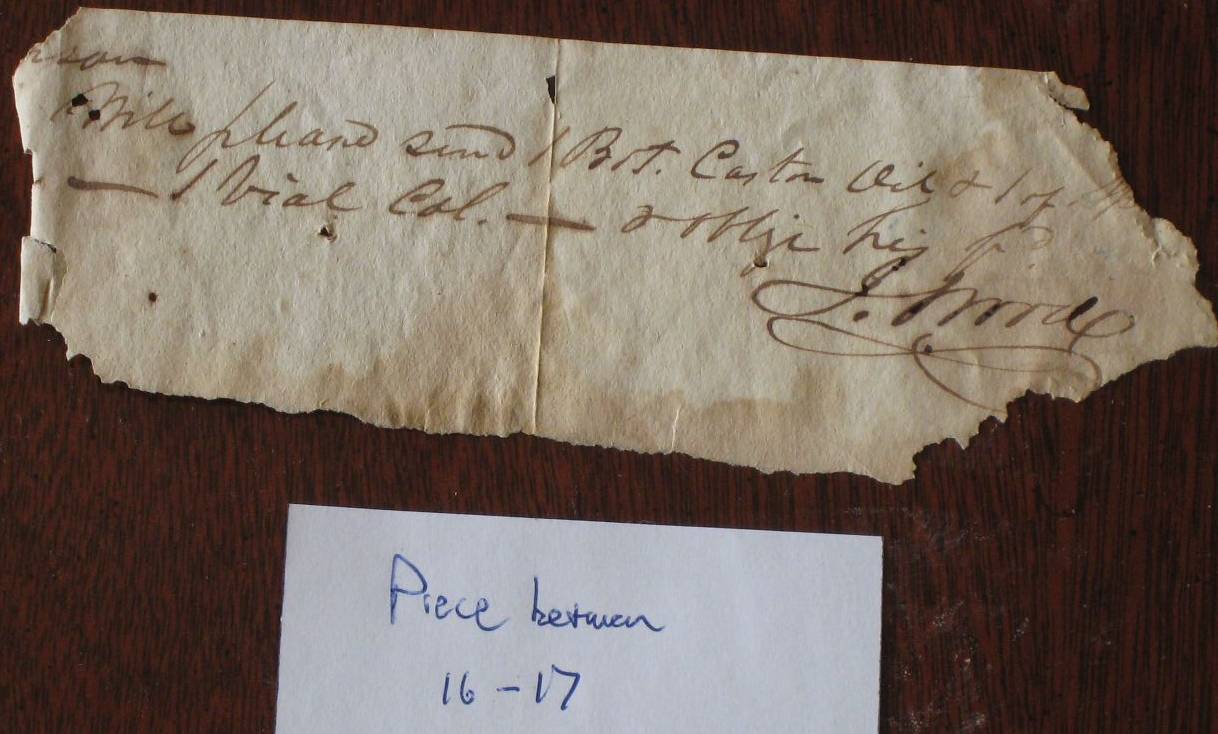 rson
Will please send 1 Bot. Castor Oil & 1 of
— 1 Vial Col. — & oblige his fd
J. Wood
Piece between
16 - 17